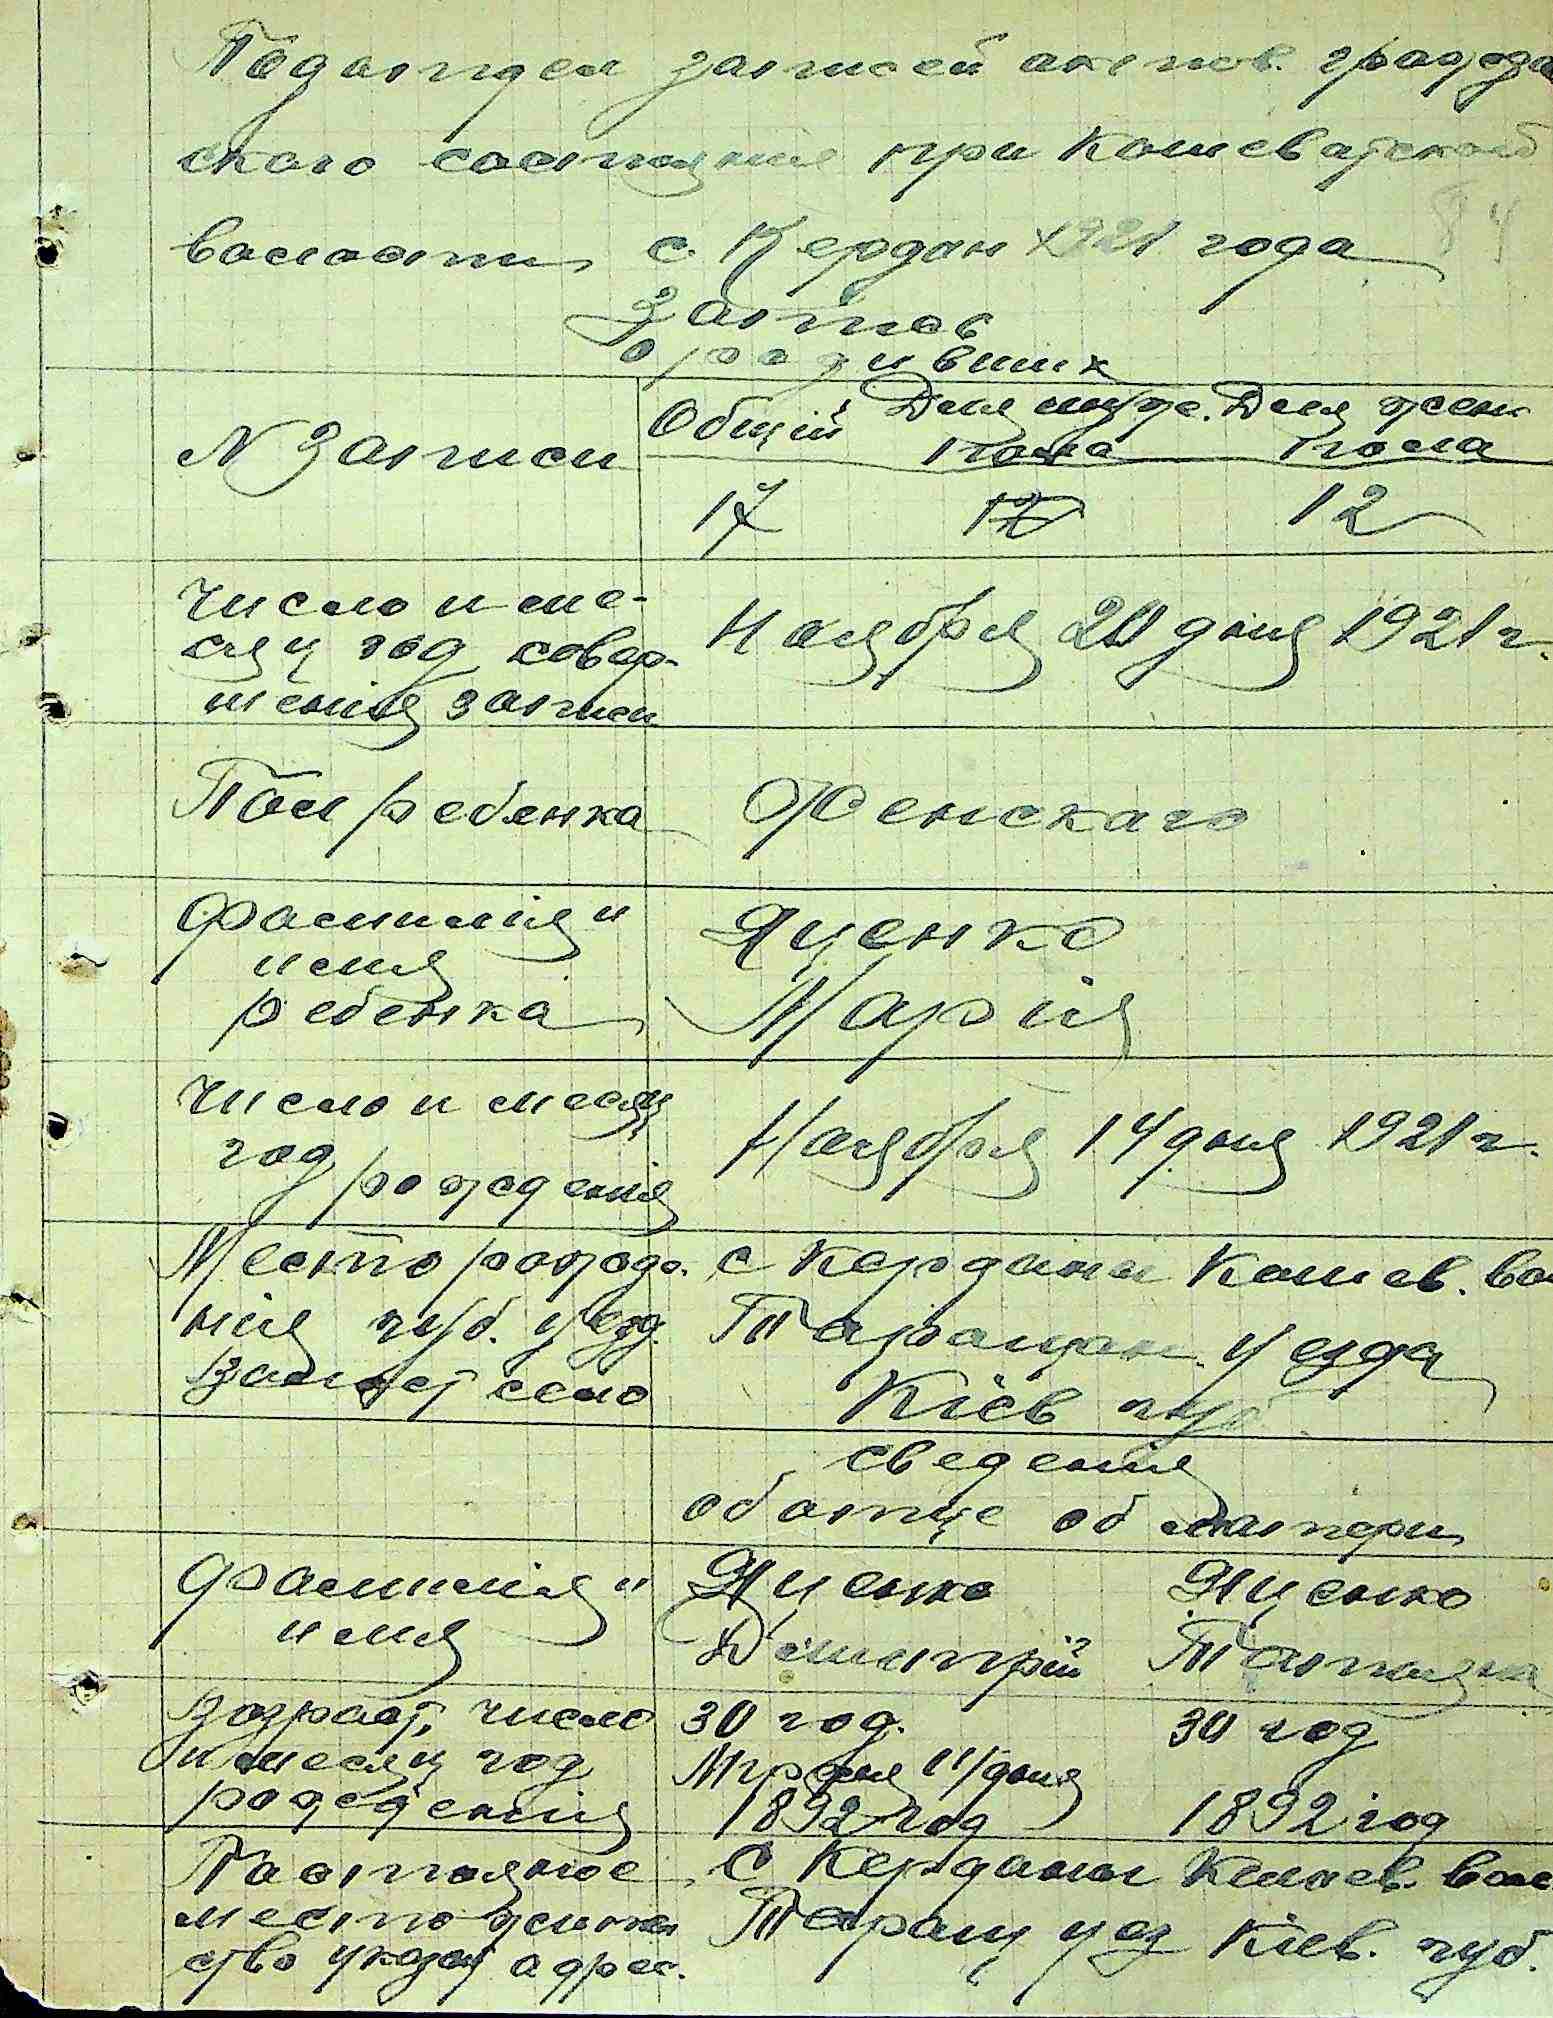 Подотдел записей актов. гражда
ского состояния при Кошеватской
волости с. Кердан 1921 года
84
Запись
о родивших
N Записи
Общій Для муже. Для женс
пола пола
17 17 12
число и ме-
сяц год совер-
шенія записи
Ноября 20 дня 1921 г.
Пол ребенка
Женскаго
Фамилія и
имя
ребенка
Яценко
Марія
число и месяц
год рожденія
Ноября 14 дня 1921 г.
Место рожде-
нія губ. уезд.
волост село
с Керданы Кошев. вол
Таращан. уезда
Кіев губ
сведенія
об отце об матери
Фамилія и
имя
Яценко Яценко
Дмитрій Татияна
Возраст, число
и месяц год
рожденія
30 год. 30 год
11 дня
1892 год 1892 год
Постояное
место жител
ство указат адрес.
С Керданы Кошев. вол
Таращ уез Кіев. губ.